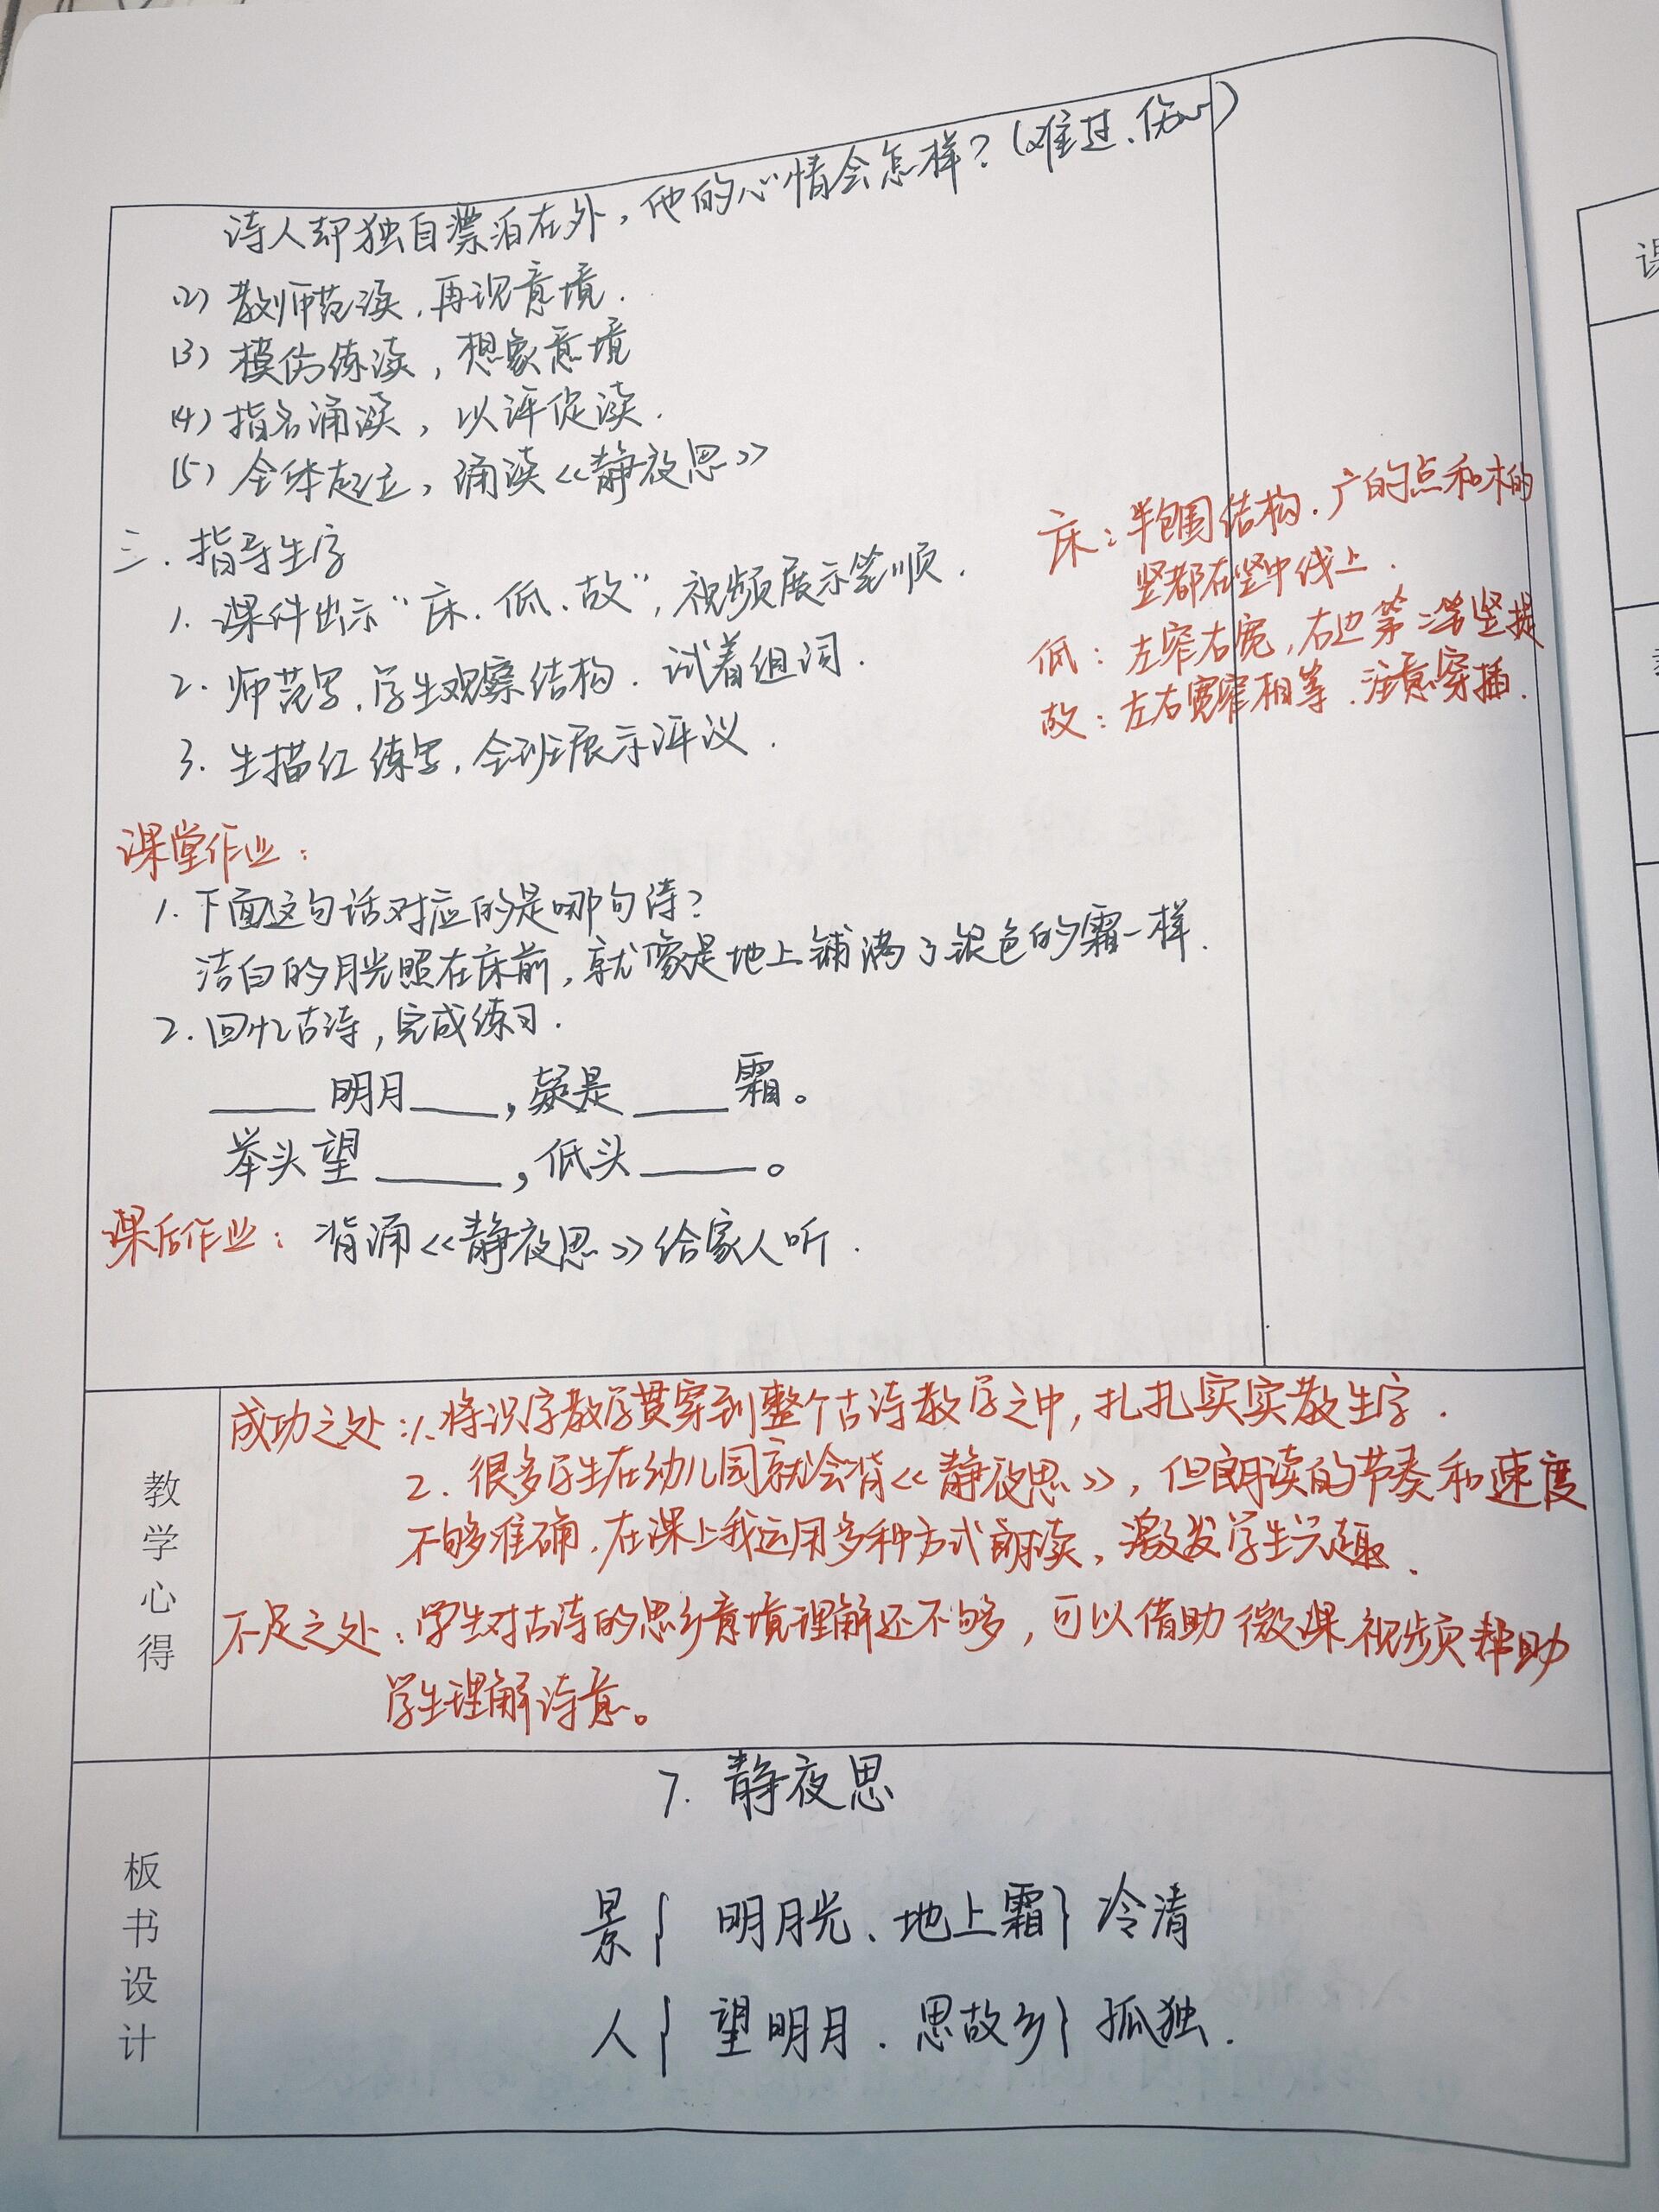 诗人却独自漂泊在外，他的心情会怎样？(难过、伤心)
(2) 教师范读，再现意境.
(3) 模仿练读，想象意境
(4) 指名诵读，以评促读.
(5) 全体起立，诵读《静夜思》
三. 指导生字
1. 课件出示“床、低、故”，视频展示笔顺.
2. 师范写，学生观察结构. 试着组词.
3. 生描红练写，全班展示评议.
床：半包围结构. 广的点和木的
竖都在竖中线上.
低：左窄右宽，右边第二笔竖提
故：左右宽窄相等. 注意穿插.
课堂作业：
1. 下面这句话对应的是哪句诗?
洁白的月光照在床前，就像是地上铺满了银色的霜一样.
2. 回忆古诗，完成练习.
____明月____，疑是____霜。
举头望____，低头____。
课后作业：背诵《静夜思》给家人听.
教学心得
成功之处：1. 将识字教学贯穿到整个古诗教学之中，扎扎实实教生字.
2. 很多学生在幼儿园就会背《静夜思》，但朗读的节奏和速度
不够准确，在课上我运用多种方式朗读，激发学生兴趣.
不足之处：学生对古诗的思乡意境理解还不够，可以借助微课视频帮助
学生理解诗意。
板书设计
7. 静夜思
景{ 明月光、地上霜} 冷清
人{ 望明月. 思故乡} 孤独.
课